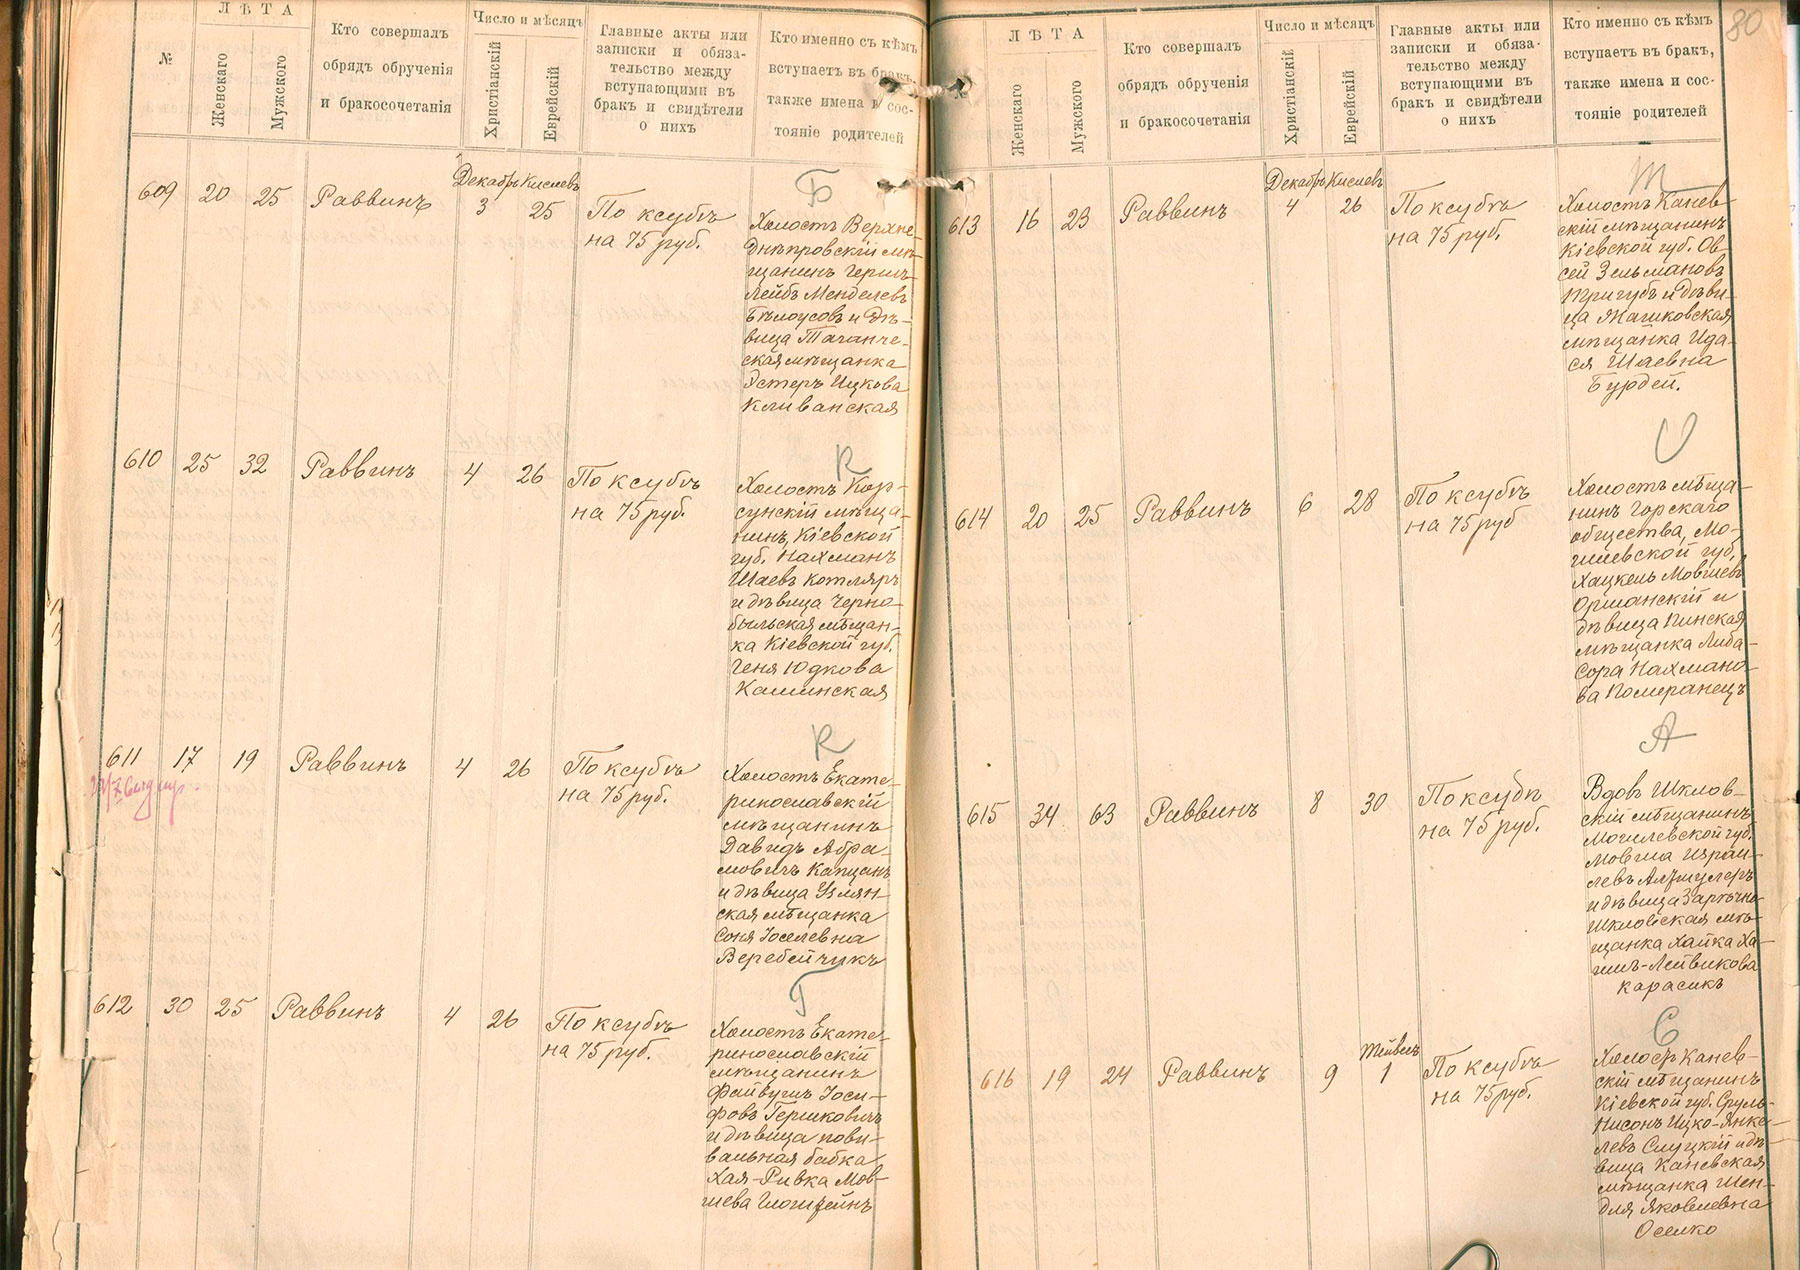 ЛѢТА
№
Женскаго
Мужского
Кто совершалъ
обрядъ обрученія
и бракосочетанія
Число и мѣсяцъ
Христіанскій
Еврейскій
Главные акты или
записки и обяза-
тельство между
вступающими въ
бракъ и свидѣтели
о нихъ
Кто именно съ кѣмъ
вступаетъ въ бракъ,
также имена и сос-
тояніе родителей
609 20 25 Раввинъ
Декабрь Кислевъ
3 25
По ксубѣ
на 75 руб.
Б
Холостъ Верхне-
Днѣпровскій мѣ-
щанинъ Герш-
Лейбъ Менделевъ
Бѣлоусовъ и дѣ-
вица Таганче-
ская мѣщанка
Эстеръ Ицкова
Кливанская
610 25 32 Раввинъ 4 26
По ксубѣ
на 75 руб.
К
Холостъ Кор-
сунскій мѣща-
нинъ, Кіевской
губ. Нахманъ
Шаевъ Котляръ
и дѣвица Черно-
быльская мѣщан-
ка Кіевской губ.
Геня Юдкова
Калинская
611 17 19 Раввинъ 4 26
По ксубѣ
на 75 руб.
К
Холостъ Екате-
ринославскій
мѣщанинъ
Давидъ Абра-
мовичъ Капцанъ
и дѣвица Узлян-
ская мѣщанка
Соня Іоселевна
Веребейчикъ
612 30 25 Раввинъ 4 26
По ксубѣ
на 75 руб.
Г
Холостъ Екате-
ринославскій
мѣщанинъ
Файвушъ Іоси-
фовъ Гершковичъ
и дѣвица пови-
вальная бабка
Хая-Ривка Мов-
шева
80
ЛѢТА
Женскаго
Мужского
Кто совершалъ
обрядъ обрученія
и бракосочетанія
Число и мѣсяцъ
Христіанскій
Еврейскій
Главные акты или
записки и обяза-
тельство между
вступающими въ
бракъ и свидѣтели
о нихъ
Кто именно съ кѣмъ
вступаетъ въ бракъ,
также имена и сос-
тояніе родителей
613 16 23 Раввинъ
Декабрь Кислевъ
4 26
По ксубѣ
на 75 руб.
Т
Холостъ Канев-
скій мѣщанинъ
Кіевской губ. Ов-
сей Зельмановъ
Тригубъ и дѣви-
ца Яготиковская
мѣщанка Ида-
ся Шаевна
Бурдей.
614 20 25 Раввинъ 6 28
По ксубѣ
на 75 руб
О
Холостъ мѣща-
нинъ Горскаго
общества, Мо-
гилевской губ.
Хацкель Мовшевъ
Оршанскій и
дѣвица Пинская
мѣщанка Либа-
Сора Нахмано-
ва Померанецъ
615 34 63 Раввинъ 8 30
По ксубѣ
на 75 руб.
А
Вдовъ Шклов-
скій мѣщанинъ
Могилевской губ.
Мовша Израи-
левъ Альтшулеръ
и дѣвица Зарѣчно-
Шкловская мѣ-
щанка Хайка Ха-
имъ-Лейвикова
Карасикъ
616 19 24 Раввинъ
9
Тейвесъ
1
По ксубѣ
на 75 руб.
С
Холостъ Канев-
скій мѣщанинъ
Кіевской губ. Сруль-
Нисонъ Ицко-Янке-
левъ Слуцкій и дѣ-
вица Каневская
мѣщанка Шен-
для Яковлевна
Оселко